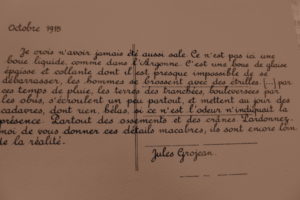 Octobre 1915
Je crois n'avoir jamais été aussi sale. Ce n'est pas ici une
boue liquide, comme dans l'Argonne. C'est une boue de glaise
épaisse et collante dont il est presque impossible de se
débarrasser, les hommes se brossent avec des étrilles. (...) par
ces temps de pluie, les terres des tranchées, bouleversées par
les obus, s'écroulent un peu partout, et mettent au jour des
cadavres, dont rien, hélas, si ce n'est l'odeur n'indiquait la
présence. Partout des ossements et des crânes. Pardonnez-
moi de vous donner ces détails macabres, ils sont encore loin
de la réalité.
Jules Grosjean.